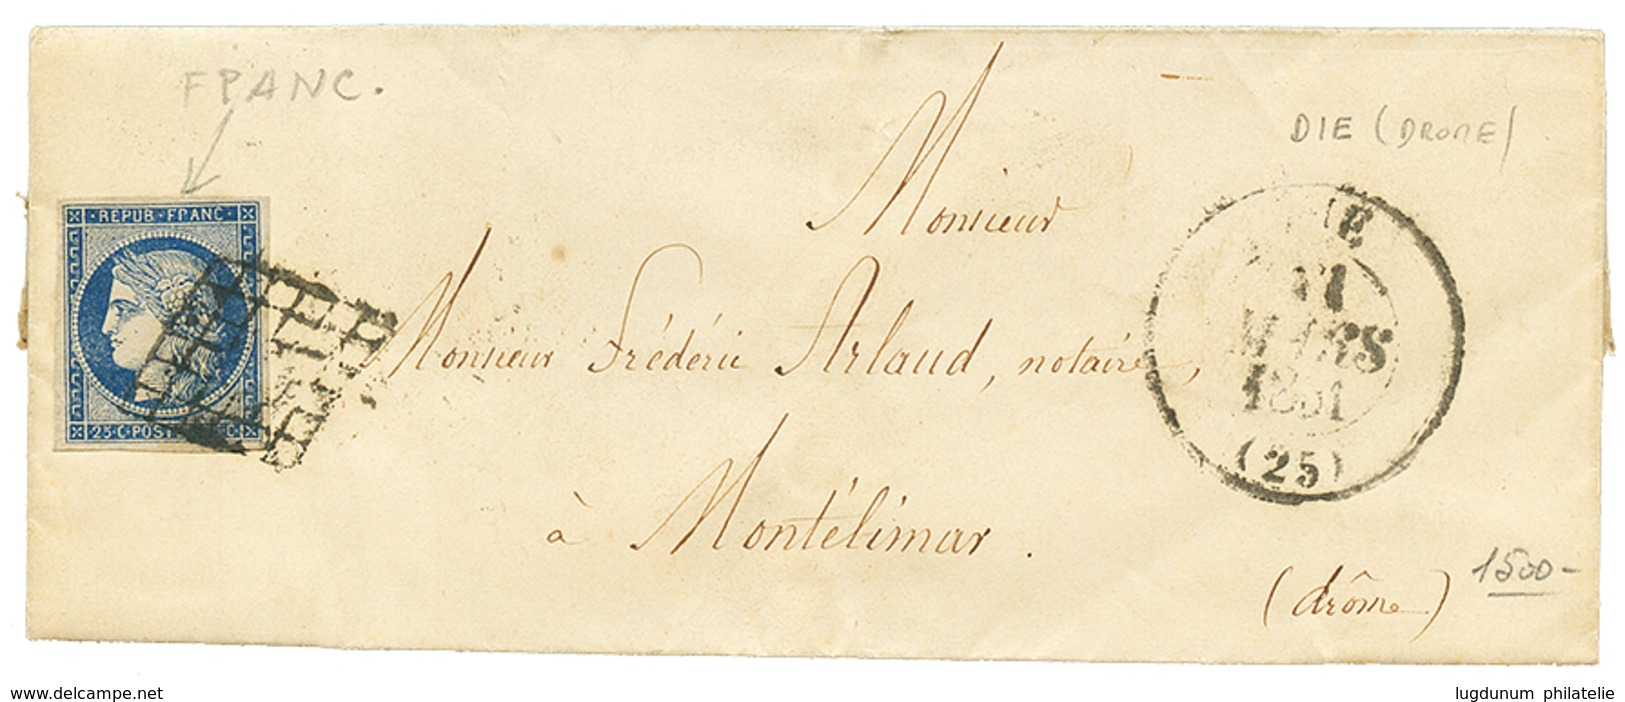 FPANC.
DIE (DROME)
REPUB·FPANC·
25·C·POST
Monsieur
Monsieur Frédéric Arlaud, notaire,
à Montélimar.
(drôme)
MARS
1851
(25)
1500-
www.delcampe.net
lugdunum philatelie